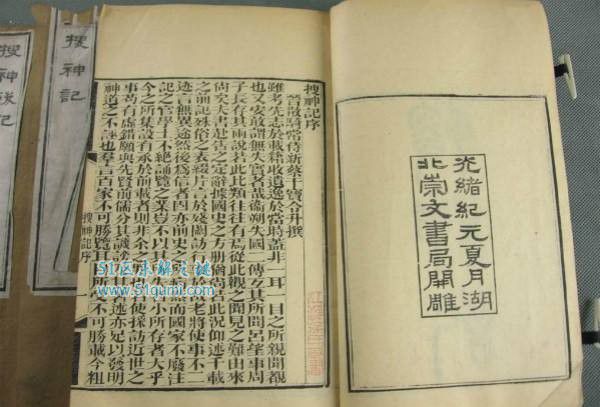 光緒紀元夏月湖
北崇文書局開雕
搜神記序
晉散騎常侍新蔡干寶令升撰
雖考先志於載籍收遺逸於當時蓋非一耳一目之所親聞覩
也又安敢謂無失實者哉衞朔失國二傳互其所聞呂望事周
子長存其兩說若此比類往往有焉從此觀之聞見之難由來
尚矣夫書赴告之定辭據國史之方冊猶尚若此況仰述千載
之前記殊俗之表綴片言於殘闕訪行事於故老將使事不二
迹言無異途然後爲信者固亦前史之所病然而國家不廢注
記之官學士不絕誦覽之業豈不以其所失者小所存者大乎
今之所集設有承於前載者則非余之罪也若使採訪近世之
事苟有虛錯願與先賢前儒分其譏謗及其著述亦足以發明
神道之不誣也羣言百家不可勝覽耳目所受不可勝載今粗
搜神記序
一
搜神記
搜神後記
51区未解之谜
www.51qumi.com